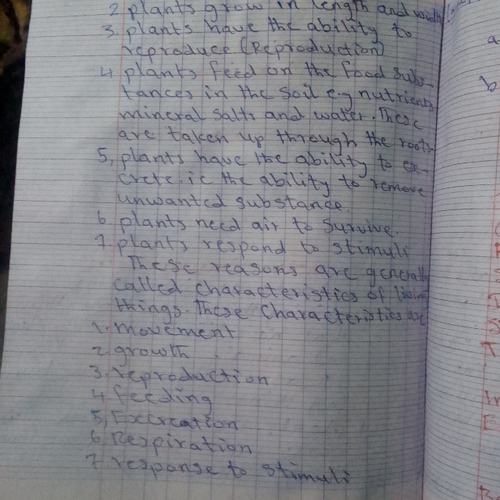 2. plants grow in length and width
3. plants have the ability to
reproduce (Reproduction)
4. plants feed on the food subs-
tances in the soil e.g nutrients
mineral salts and water. These
are taken up through the roots
5, plants have the ability to ex-
crete. ie the ability to remove
unwanted substance
6 plants need air to survive.
7. plants respond to stimuli
These reasons are generally
called characteristics of living
things. These characteristics are
1. movement
2. growth
3. reproduction
4. feeding
5, Excreation
6 Respiration
7 response to stimuli
a
b